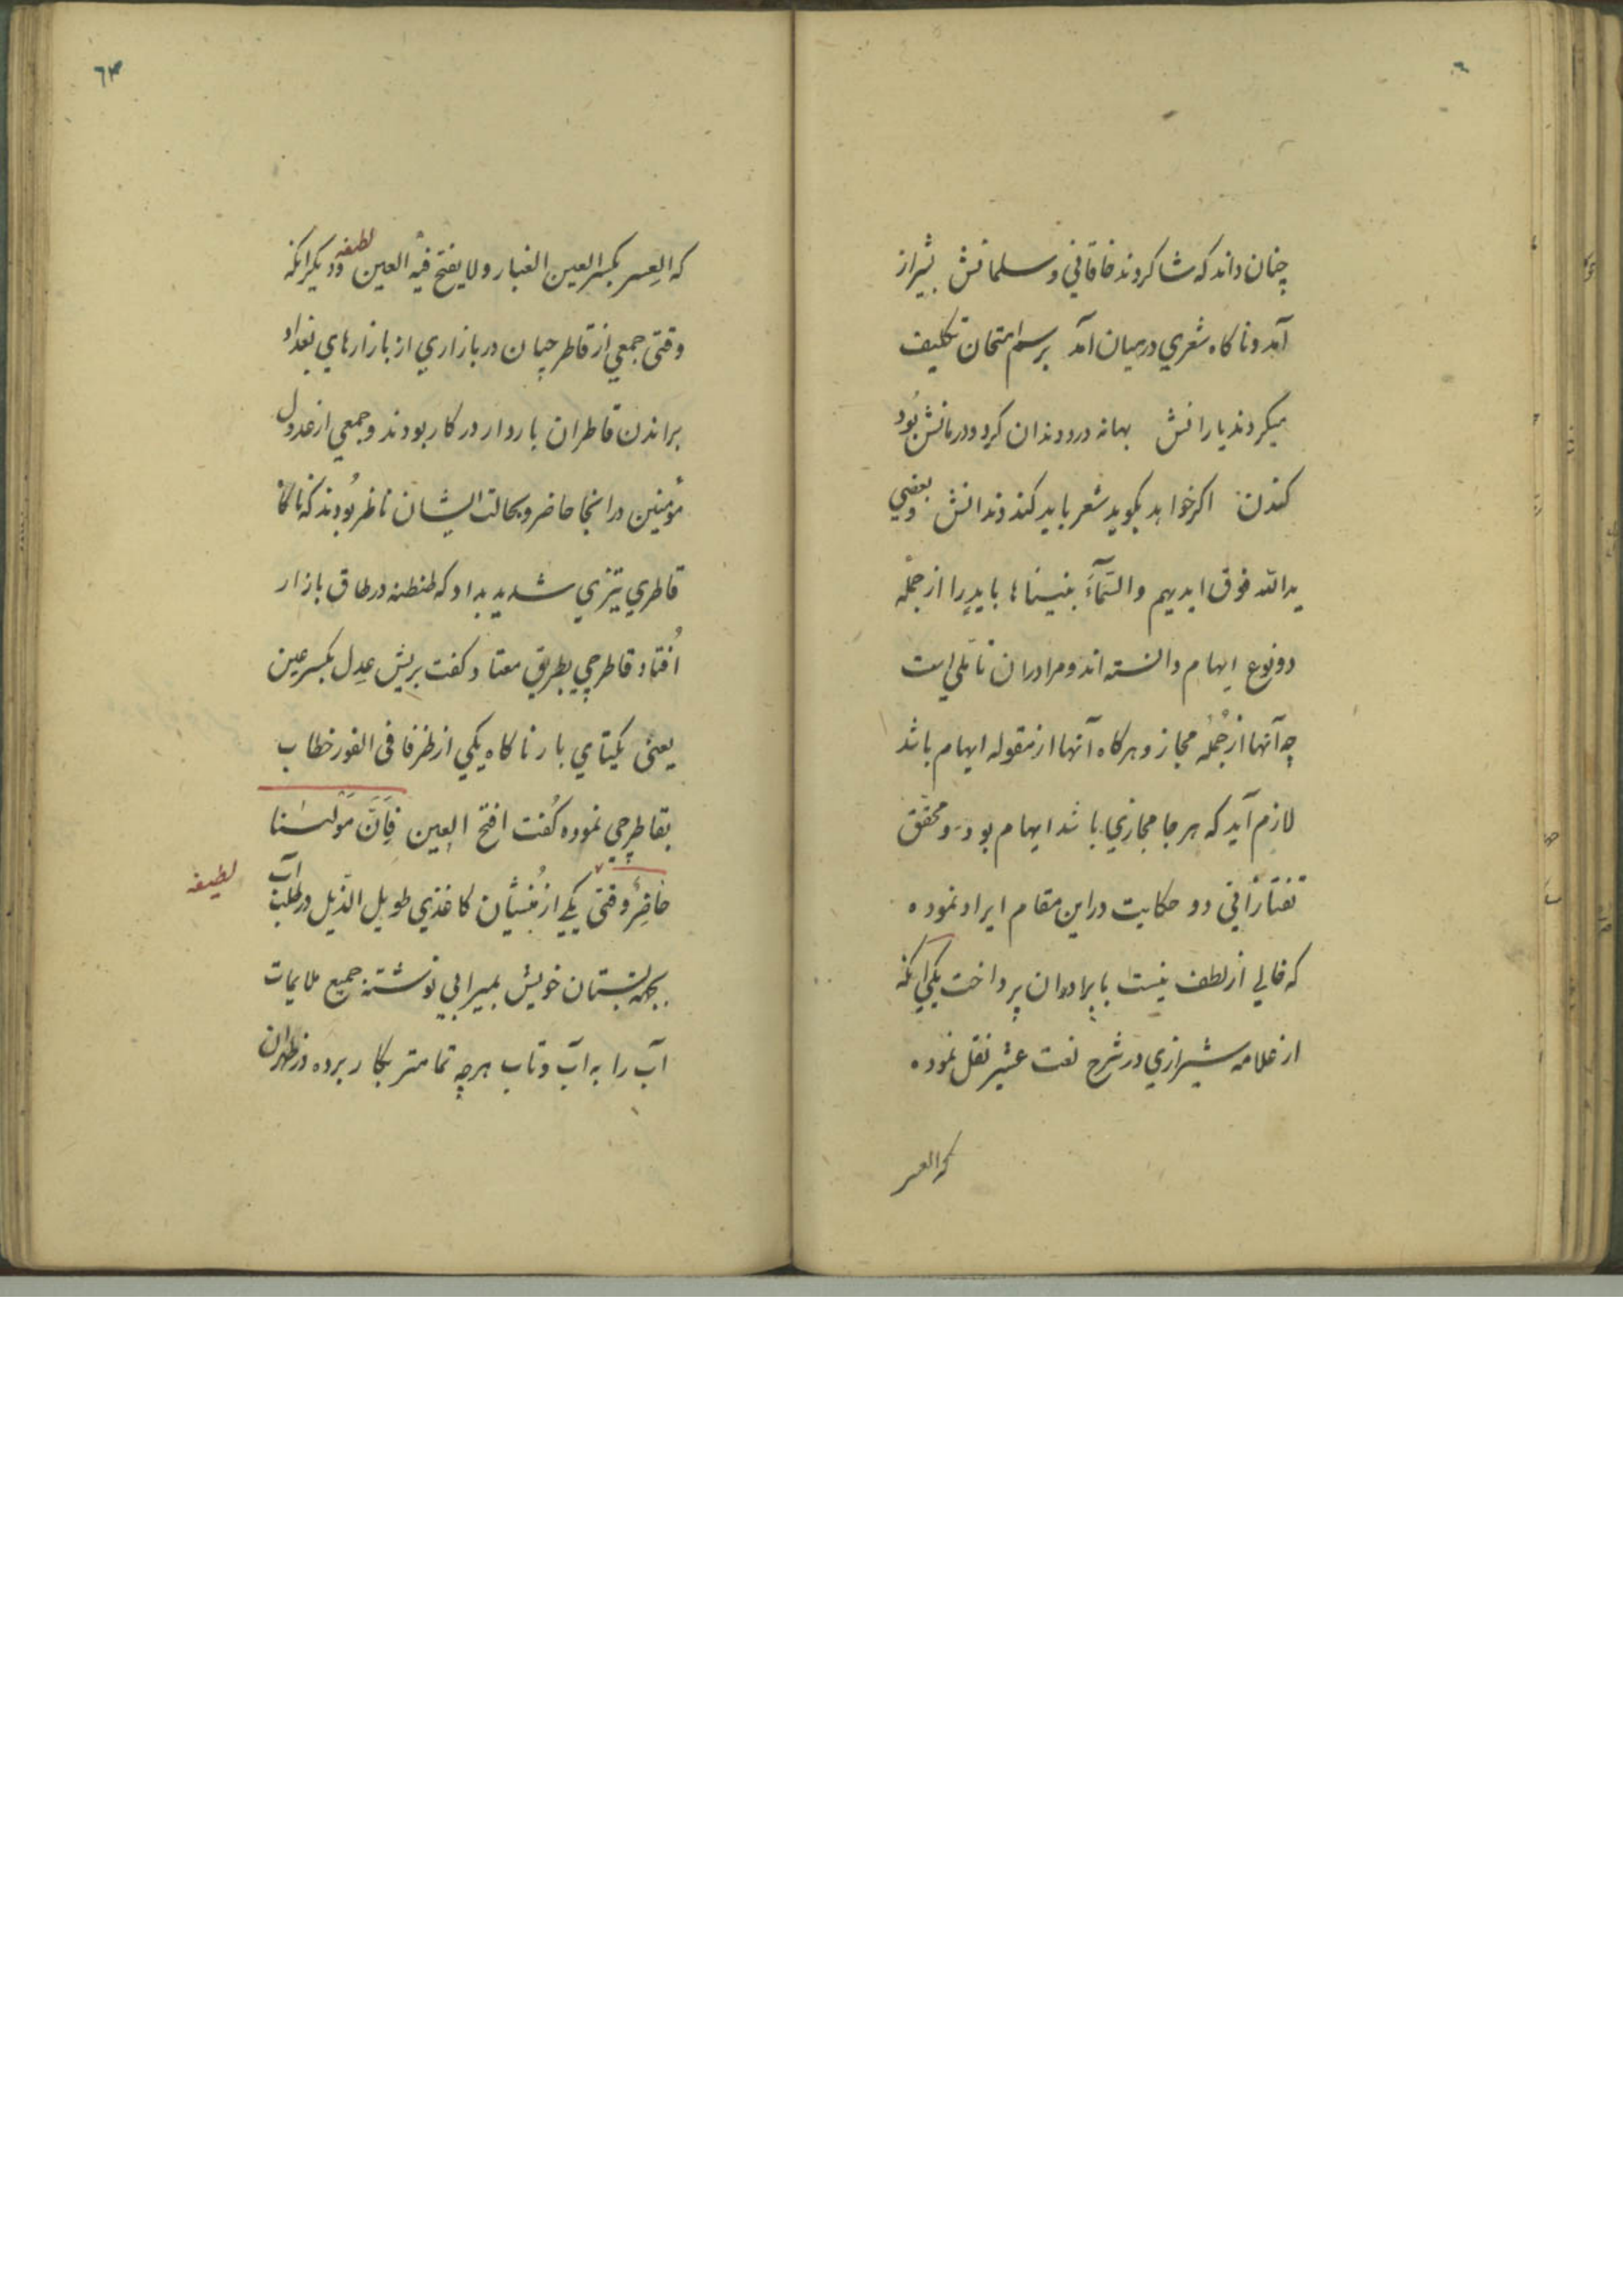 چنان داند که شاکردند خاقانی و سلمانش بشیراز
آمد و ناکاه شعری درمیان آمد برسم امتحان تکلیف
میکردند یارانش بهانه درد دندان کرد و درمانش بود
کندن اکر خواهد بکوید شعر باید کند دندانش و بعضی
یدالله فوق ایدیهم والسَّمآءَ بنیناها بایدٍ را از جمله
دو نوع ایهام دانسته اند و مرا دران تاملی است
چه آنها از جُملهٔ مجاز و هرکاه آنها از مقوله ایهام باشد
لازم آید که هر جا مجازی باشد ایهام بود و محقق
تفتازانی دو حکایت دراین مقام ایراد نموده
که خالی از لطف نیست بایراد آن پرداخت یکی آنکه
از علامه شیرازی در شرح نموده
که العسر
٦٣
که العِسر بکسر العین الغبار ولا یفتح فیه العین لطیفه و دیکر انکه
وقتی جمعی از قاطرچیان در بازاری از بازارهای بغداد
براندن قاطران باردار در کار بودند و جمعی از عدول
مؤمنین درانجا حاضر و بحالت ایشان ناظر بُودند که ناکاه
قاطری تیزی شدید بداد که طنطنه در طاق بازار
اُفتاد قاطرچی بطریق معتاد کفت بریش عِدل بکسر عین
یعنی یکتای بار ناکاه یکی از ظرفا فی الفور خطاب
بقاطرچی نموده کُفت افتح العین فاِنَّ مَولٰنا
حاضِرٌ وقتی یکی از مُنشیان کاغذی طویل الذّیل در طلب آب
لطیفه
بجهة بستان خویش بمیرابی نوشته جمیع ملایمات
آب را به آب و تاب هرچه تمامتر بکار برده در